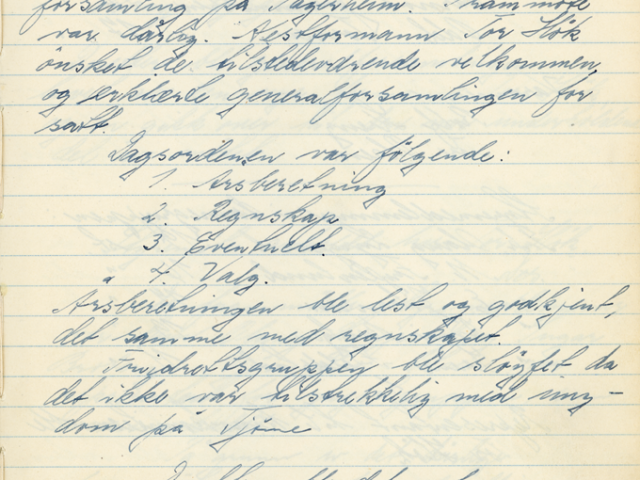 forsamling på Fagerheim. Frammøte
var dårlig. Nestformann Tor Høk
ønsket de tilstedeværende velkommen
og erklærte generalforsamlingen for
satt.
Dagsordenen var følgende:
1. Årsberetning
2. Regnskap
3. Eventuelt.
4. Valg.
Årsberetningen ble lest og godkjent,
det samme med regnskapet.
Fridrettsgruppen ble sløyfet da
det ikke var tilstrekkelig med ung-
dom på Tjøme